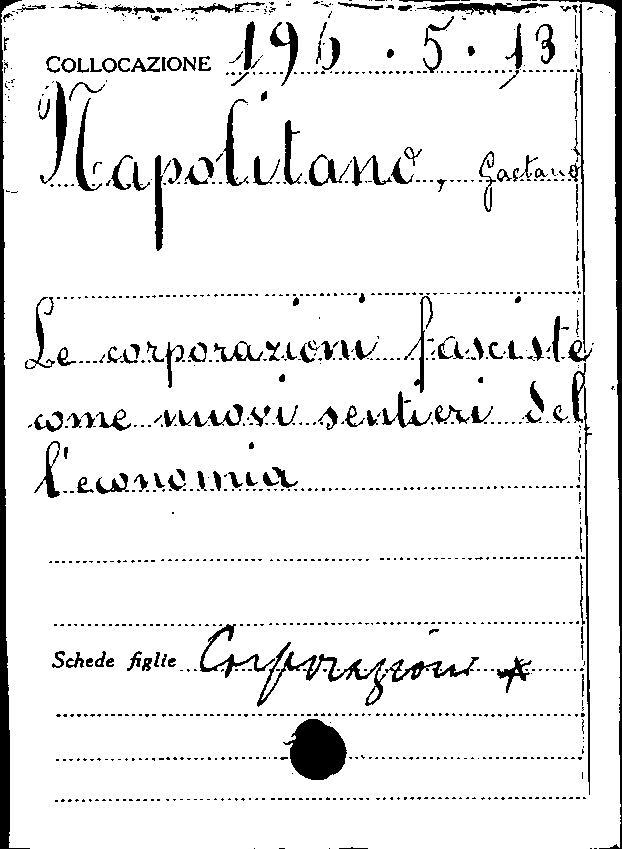 COLLOCAZIONE 196.5.13
Napolitano, Gaetano
Le corporazioni fasciste
come nuovi sentieri del
l'economia
Schede figlie Corporazioni